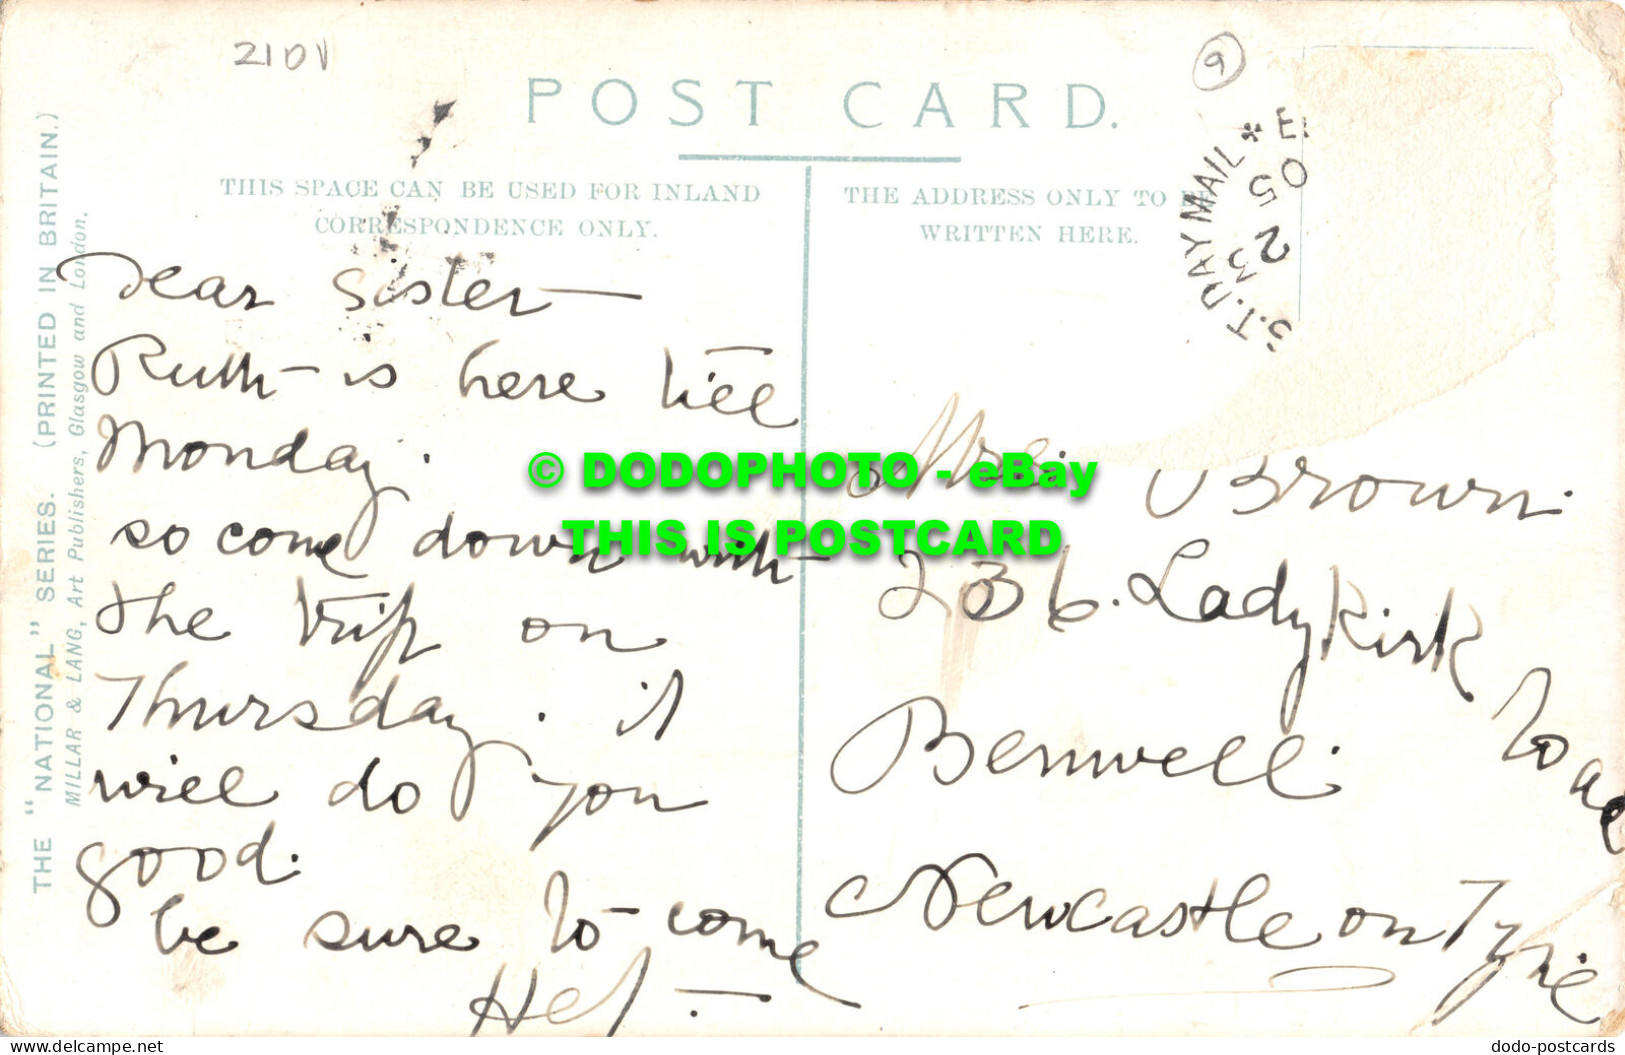 210
9
POST CARD.
THIS SPACE CAN BE USED FOR INLAND
CORRESPONDENCE ONLY.
THE ADDRESS ONLY TO BE
WRITTEN HERE.
S.T. DAY MAIL
E
23
05
THE "NATIONAL" SERIES. (PRINTED IN BRITAIN.)
MILLAR & LANG, Art Publishers, Glasgow and London.
Dear Sister —
Ruth is here till
Monday.
so come down with
the trip on
Thursday. it
will do you
good.
be sure to come
Mrs Brown.
236. Ladykirk
Road
Benwell.
Newcastle on Tyne
© DODOPHOTO - eBay
THIS IS POSTCARD
www.delcampe.net
dodo-postcards